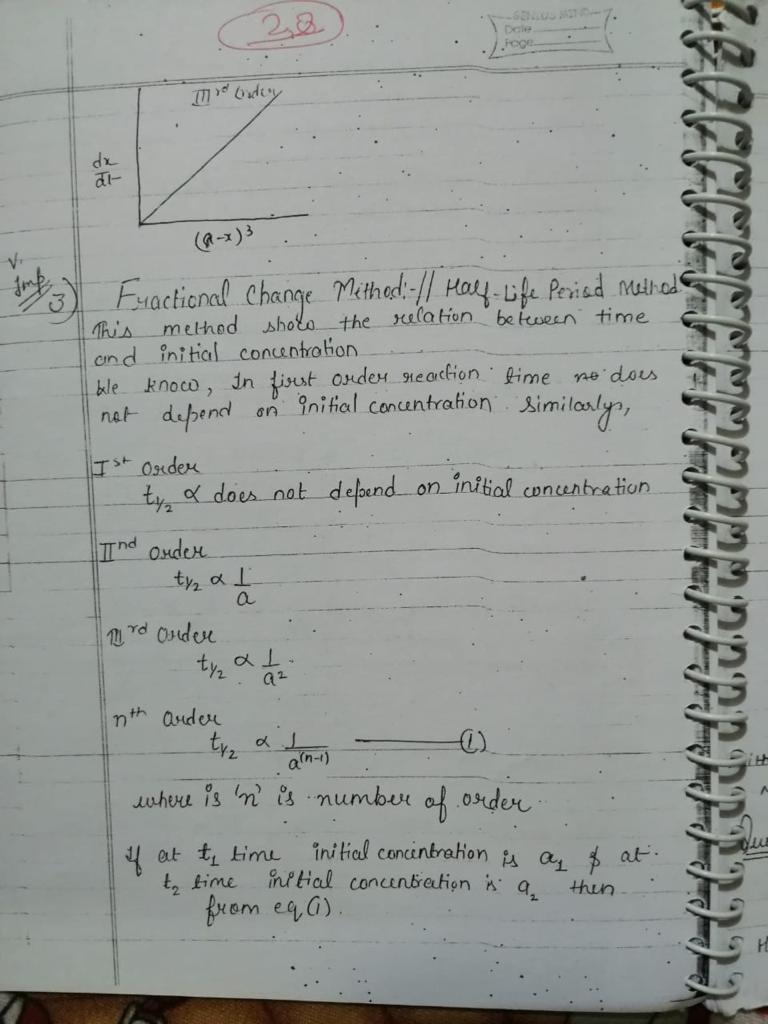 2,8
GENIUS MIND
Date
Page
IIIrd Order
dx
dt
(a-x)³
V.
Imp
3) Fractional Change Method:-// Half-Life Period Method
This method show the relation between time
and initial concentration
We know, In first order reaction time no does
not depend on initial concentration. Similarly,
Ist order
t1/2 ∝ does not depend on initial concentration
IInd order
t1/2 ∝ 1/a
IIIrd order
t1/2 ∝ 1/a².
nth order
t1/2 ∝ 1/a(n-1) ——— (1)
where is 'n' is number of order.
If at t1 time initial concentration is a1 & at
t2 time initial concentration is a2 then
from eq (1).